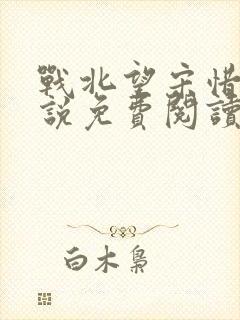 戰北望宋惜
說免費閱讀
白木梟